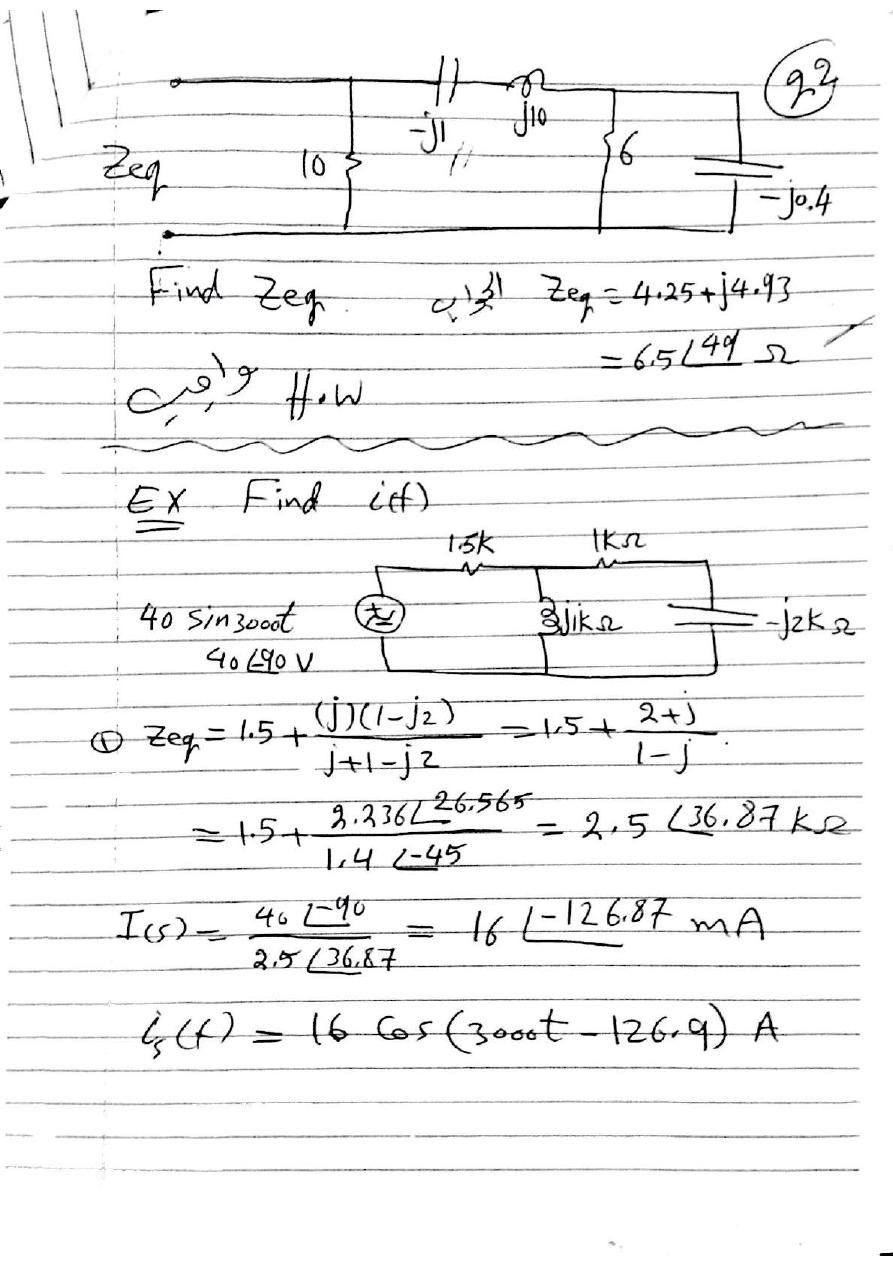 q2
-j1 j10
Zeq 10 6
-j0.4
Find Zeq الجواب Zeq = 4.25+j4.93
= 6.5∠49 Ω
واجب H.W
EX Find i(t)
1.5k 1kΩ
40 sin3000t j1kΩ -j2kΩ
40∠-90 V
① Zeq = 1.5 + (j)(1-j2) / j+1-j2 = 1.5 + 2+j / 1-j
= 1.5 + 2.236∠26.565 / 1.4∠-45 = 2.5∠36.87 kΩ
I(s) = 40∠-90 / 2.5∠36.87 = 16∠-126.87 mA
is(t) = 16 Cos(3000t - 126.9) A